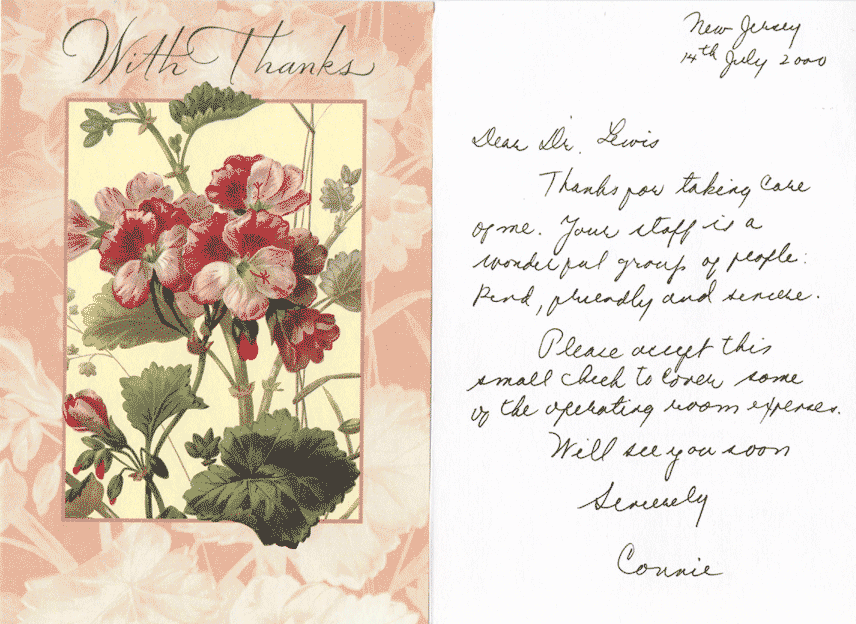 With Thanks
New Jersey
14th July 2000
Dear Dr. Lewis
Thanks for taking care
of me. Your staff is a
wonderful group of people:
Kind, friendly and sincere.
Please accept this
small check to cover some
of the operating room expenses.
Will see you soon
Sincerely
Connie